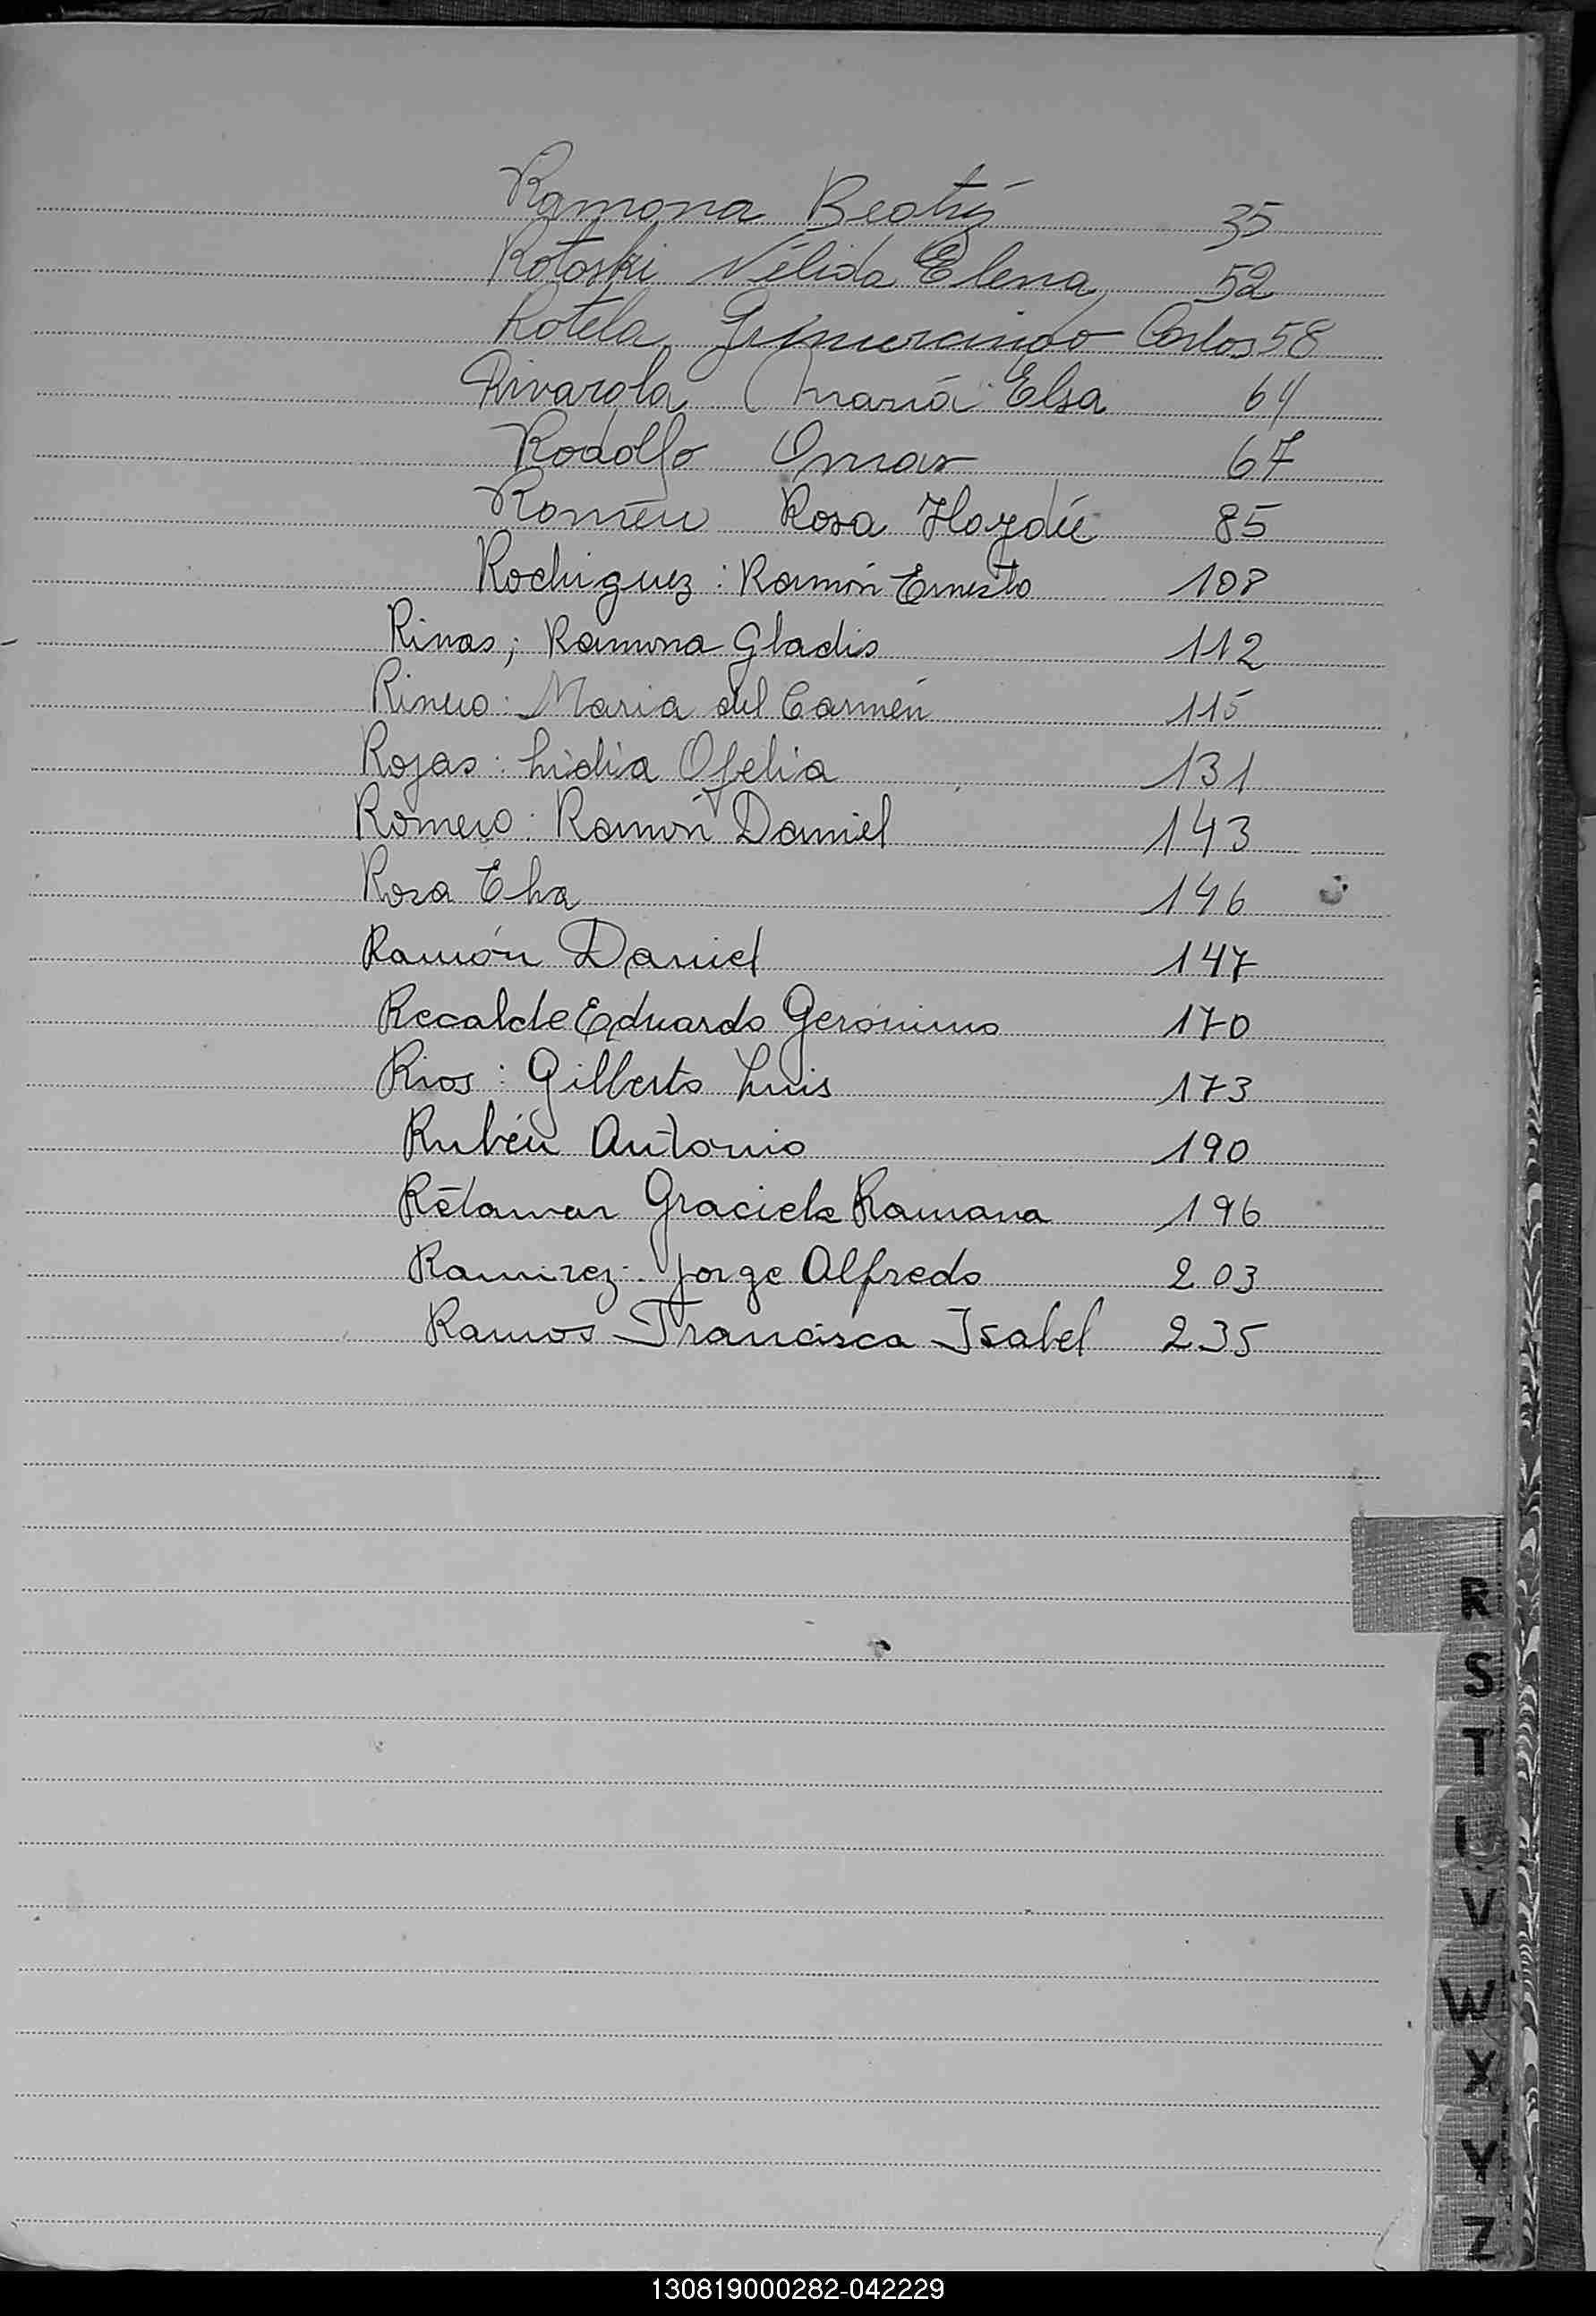 Ramona Beatriz 35
Rotoski Nélida Elena 52
Rotela Gumercindo Carlos 58
Rivarola María Elsa 64
Rodolfo Omar 67
Romero Rosa Haydée 85
Rodriguez: Ramón Ernesto 108
Rivas; Ramona Gladis 112
Rivero: Maria del Carmen 115
Rojas: Lidia Ofelia 131
Romero: Ramón Daniel 143
Rosa Elva 146
Ramón Daniel 147
Recalde Eduardo Gerónimo 170
Rios: Gilberto Luis 173
Rubén Antonio 190
Retamar Graciela Ramona 196
Ramirez: Jorge Alfredo 203
Ramos Francisca Isabel 235
R
S
T
V
W
X
Y
Z
130819000282-042229